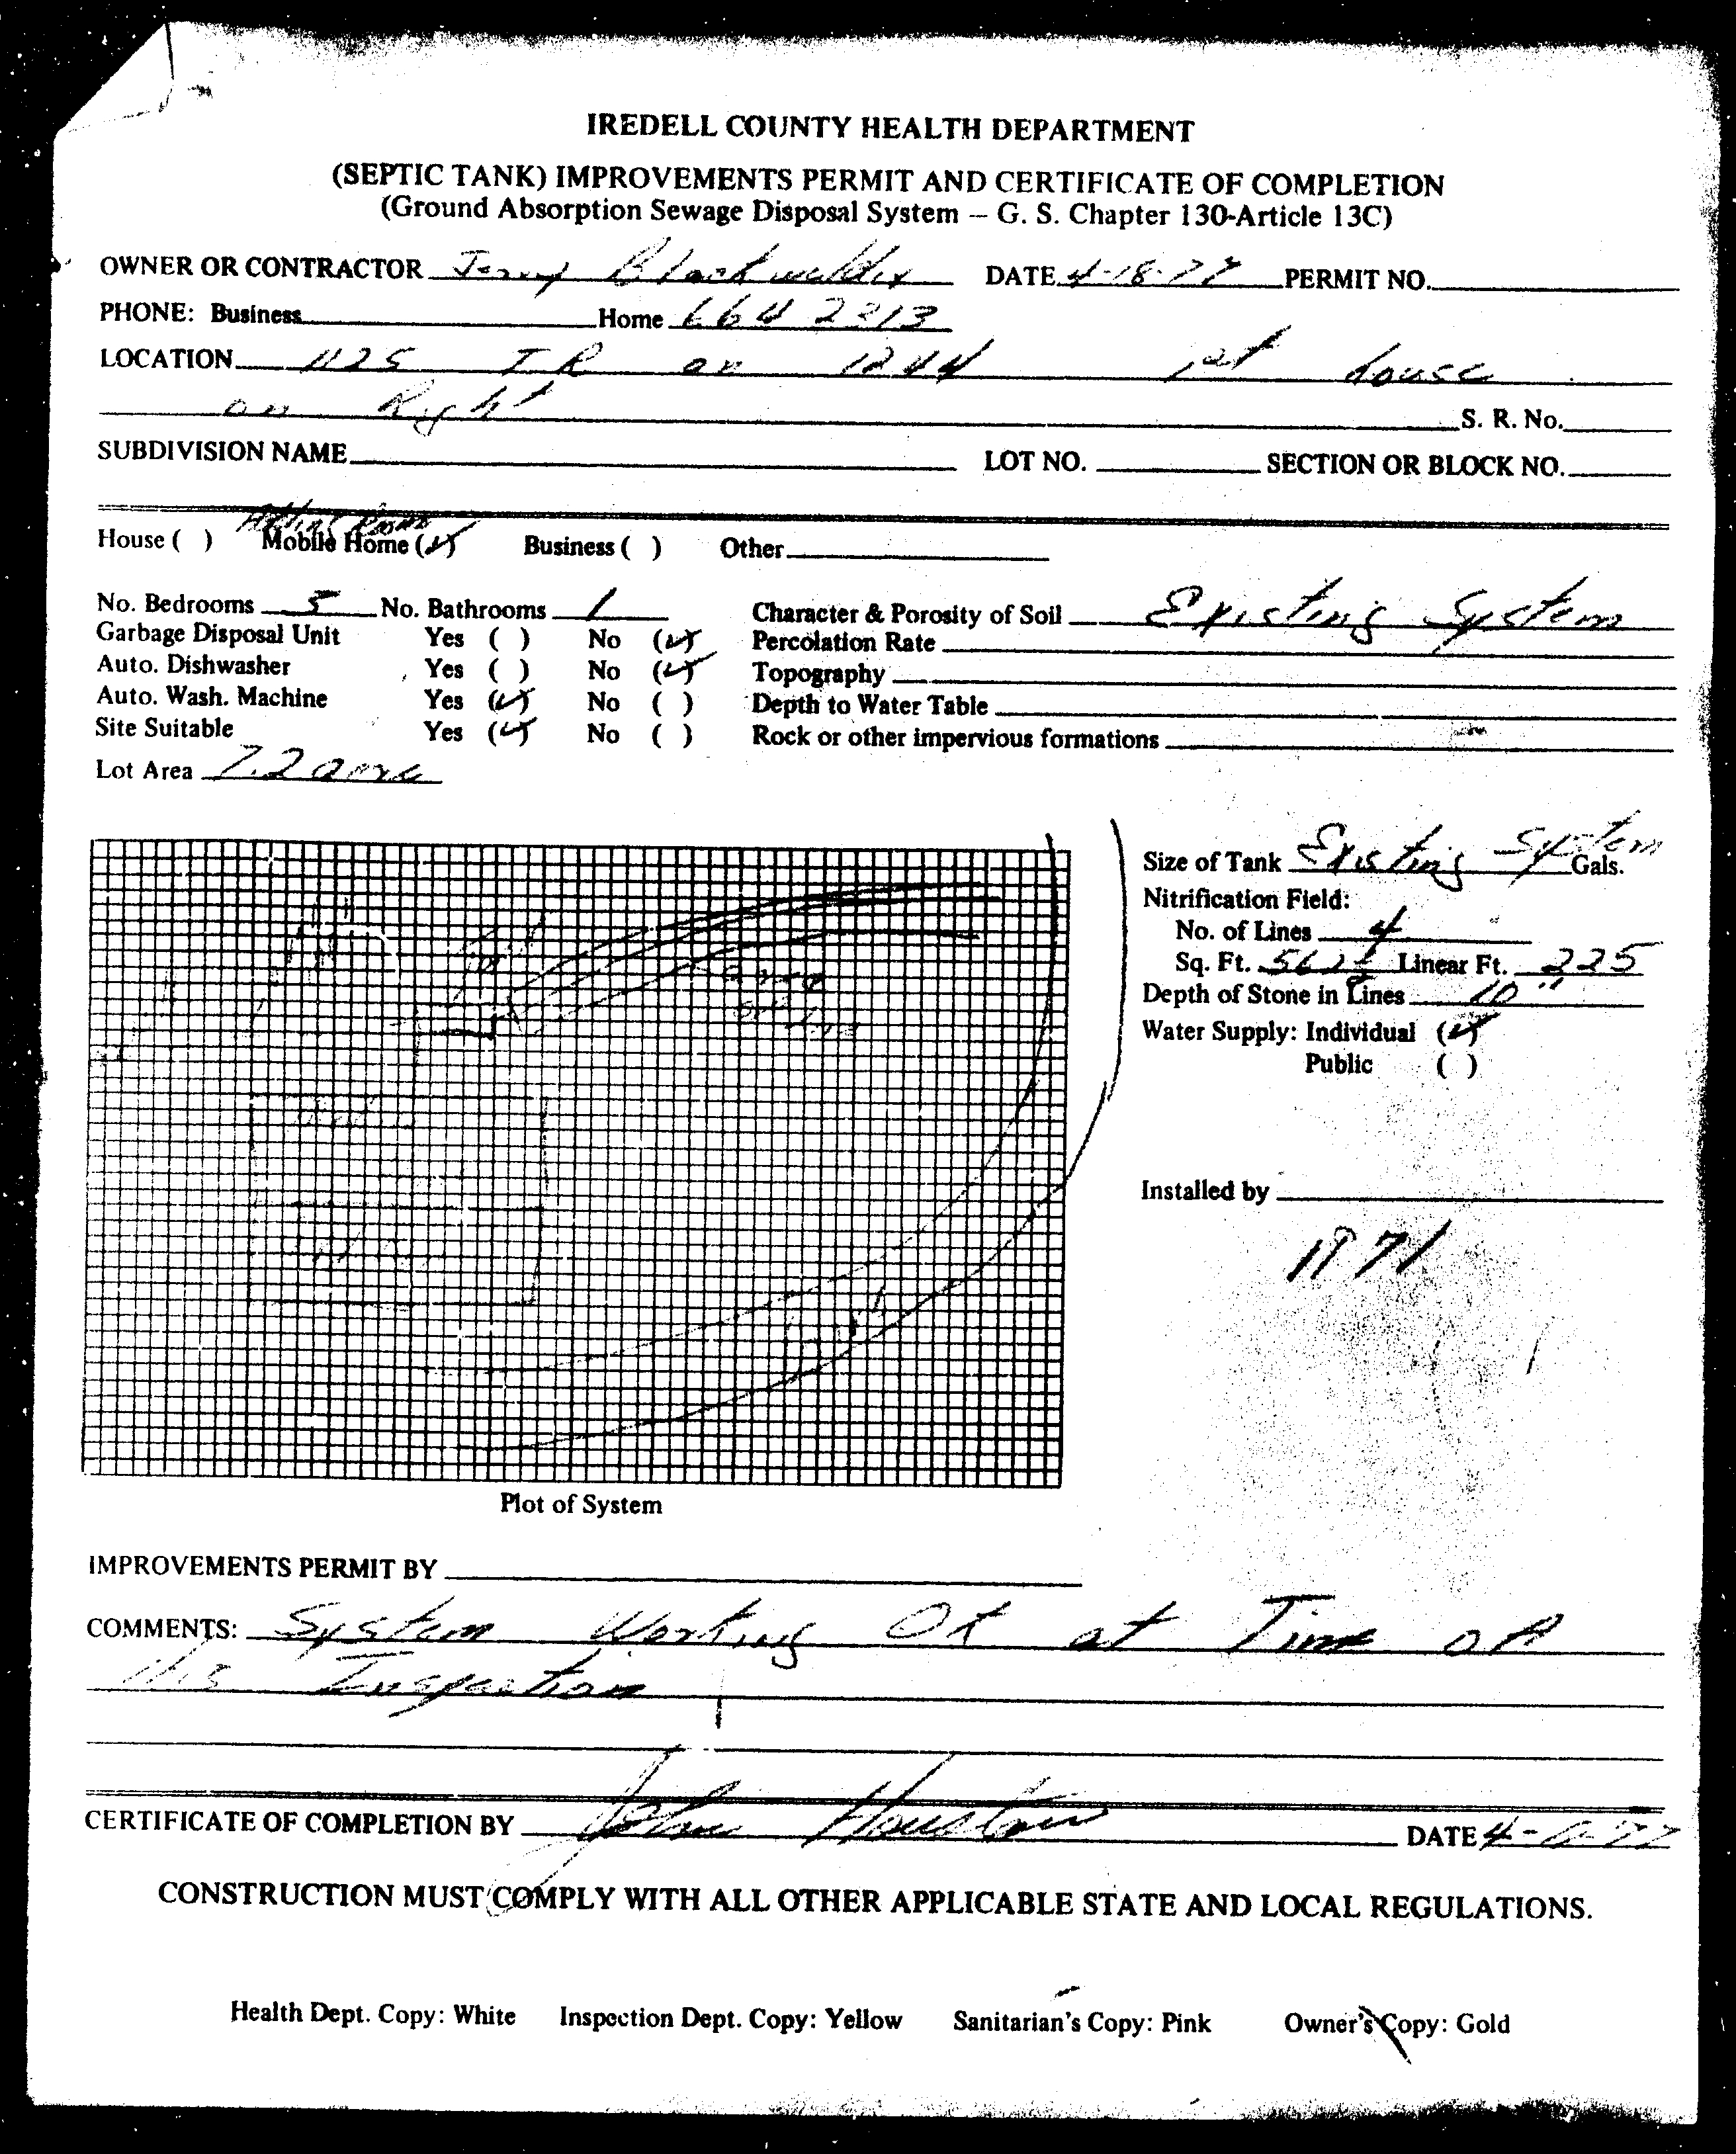 IREDELL COUNTY HEALTH DEPARTMENT
(SEPTIC TANK) IMPROVEMENTS PERMIT AND CERTIFICATE OF COMPLETION
(Ground Absorption Sewage Disposal System – G. S. Chapter 130-Article 13C)
OWNER OR CONTRACTOR Jerry Blackwelder DATE 4-18-77 PERMIT NO.
PHONE: Business Home 664 2213
LOCATION 115 TR on 1244 1st house
on Right S. R. No.
SUBDIVISION NAME LOT NO. SECTION OR BLOCK NO.
Adding Room
House ( ) Mobile Home (✓) Business ( ) Other
No. Bedrooms No. Bathrooms 1 Character & Porosity of Soil Existing System
Garbage Disposal Unit Yes ( ) No (✓) Percolation Rate
Auto. Dishwasher Yes ( ) No (✓) Topography
Auto. Wash. Machine Yes (✓) No ( ) Depth to Water Table
Site Suitable Yes (✓) No ( ) Rock or other impervious formations
Lot Area 7.2 acre
Size of Tank Existing System Gals.
Nitrification Field:
No. of Lines 4
Sq. Ft. 562 ½ Linear Ft. 225
Depth of Stone in Lines 10"
Water Supply: Individual (✓)
Public ( )
Installed by
1971
Plot of System
IMPROVEMENTS PERMIT BY
COMMENTS: System Working OK at Time of
this Inspection
CERTIFICATE OF COMPLETION BY John Houston DATE
CONSTRUCTION MUST COMPLY WITH ALL OTHER APPLICABLE STATE AND LOCAL REGULATIONS.
Health Dept. Copy: White Inspection Dept. Copy: Yellow Sanitarian's Copy: Pink Owner's Copy: Gold